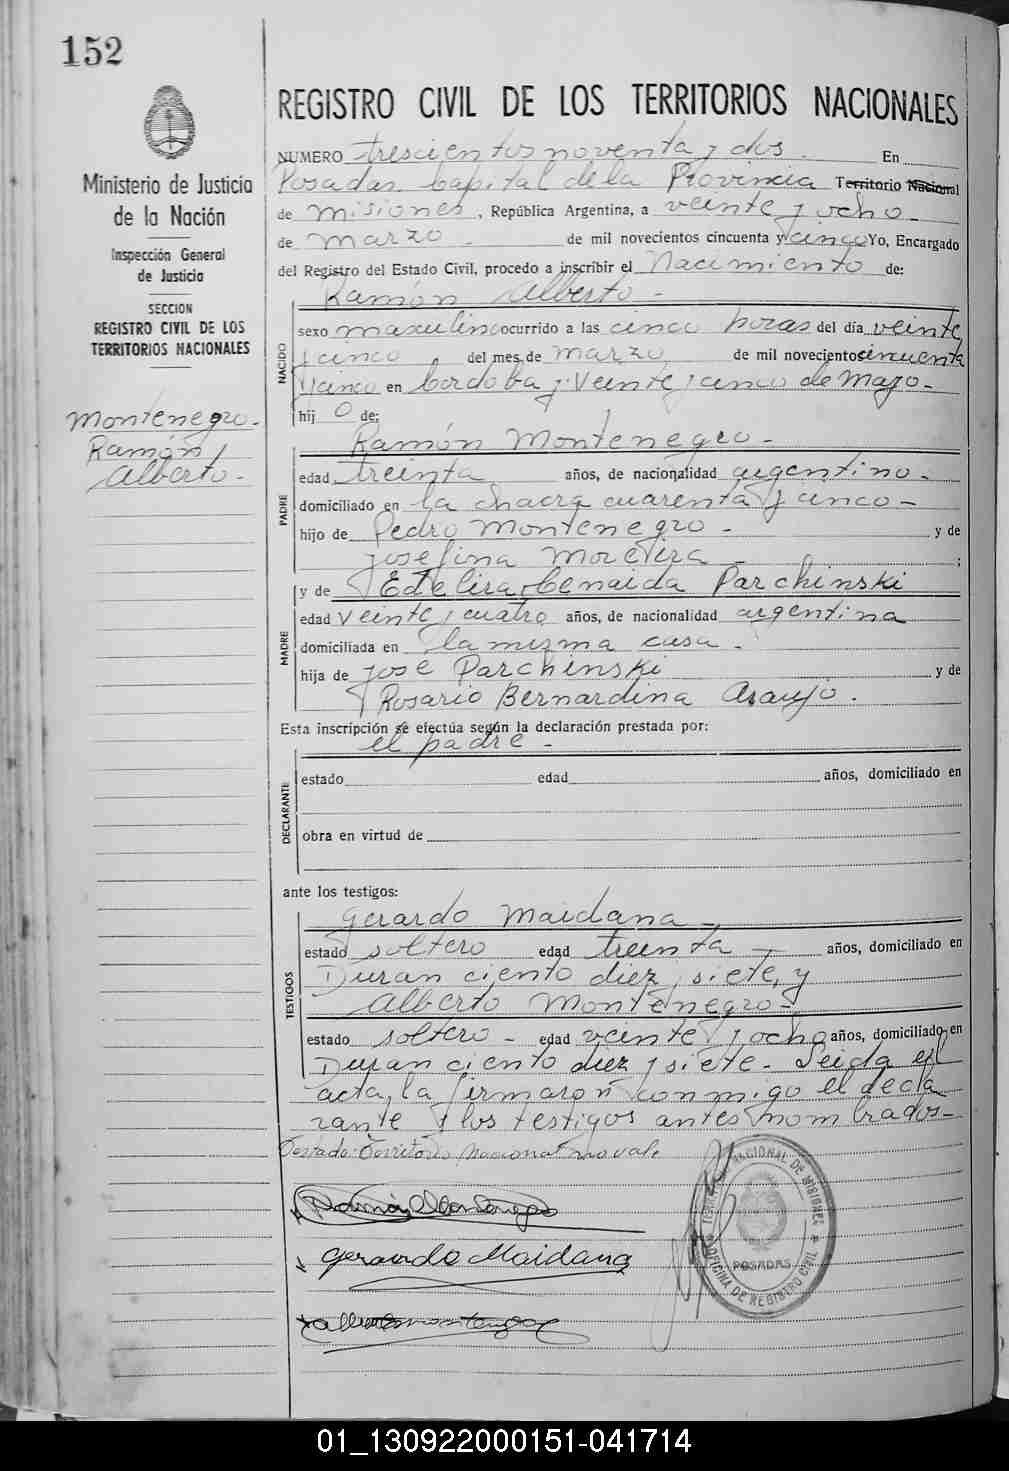 152
REGISTRO CIVIL DE LOS TERRITORIOS NACIONALES
Ministerio de Justicia
de la Nación
Inspección General
de Justicia
SECCION
REGISTRO CIVIL DE LOS
TERRITORIOS NACIONALES
Montenegro.
Ramón
Alberto.
NUMERO trescientos noventa y dos. En
Posadas Capital de la Provincia Territorio Nacional
de Misiones, República Argentina, a veinte y ocho
de marzo. de mil novecientos cincuenta y cinco Yo, Encargado
del Registro del Estado Civil, procedo a inscribir el Nacimiento de:
Ramón Alberto -
NACIDO
sexo masculino ocurrido a las cinco horas del día veinte
y cinco del mes de marzo de mil novecientos cincuenta
y cinco en Cordoba y Veinte y cinco de Mayo -
hij o de:
Ramón Montenegro -
PADRE
edad treinta años, de nacionalidad argentino -
domiciliado en la chacra cuarenta y cinco -
hijo de Pedro Montenegro - y de
Josefina Moreira - ;
MADRE
y de Edelira Cenaida Parchinski
edad veinte y cuatro años, de nacionalidad argentina
domiciliada en la misma casa.
hija de José Parchinski y de
Rosario Bernardina Araujo.
Esta inscripción se efectúa según la declaración prestada por:
el padre -
DECLARANTE
estado edad años, domiciliado en
obra en virtud de
ante los testigos:
TESTIGOS
Gerardo Maidana -
estado soltero edad treinta - años, domiciliado en
Duran ciento diez y siete, y
Alberto Montenegro -
estado soltero - edad veinte y ocho años, domiciliado en
Duran ciento diez y siete - Leida el
acta, la firmaron conmigo el decla
rante y los testigos antes nombrados -
Testado: Territorio Nacional no vale.
Ramón Montenegro
Gerardo Maidana
Alberto Montenegro
NACIONAL DE MISIONES
POSADAS
OFICINA DE REGISTRO CIVIL
01_130922000151-041714